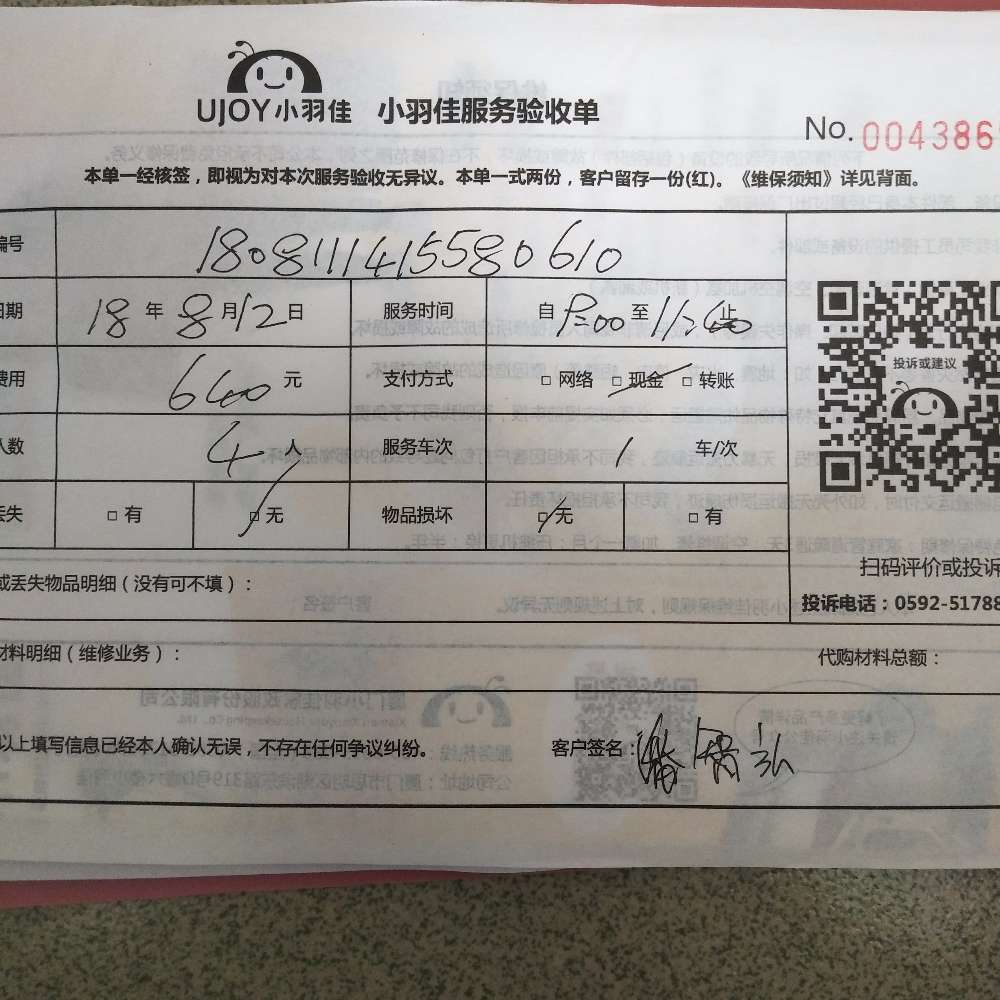 UJOY小羽佳 小羽佳服务验收单
No. 0043866
本单一经核签，即视为对本次服务验收无异议。本单一式两份，客户留存一份(红)。《维保须知》详见背面。
编号 1808111415580610
日期 18 年 8 月 12 日 服务时间 自 8:00 至 11:00 止
费用 640 元 支付方式 □ 网络 □ 现金 □ 转账
人数 4 人 服务车次 1 车/次
丢失 □ 有 □ 无 物品损坏 □ 无 □ 有
投诉或建议
扫码评价或投诉
投诉电话：0592-51788
或丢失物品明细（没有可不填）：
材料明细（维修业务）： 代购材料总额：
以上填写信息已经本人确认无误，不存在任何争议纠纷。 客户签名：